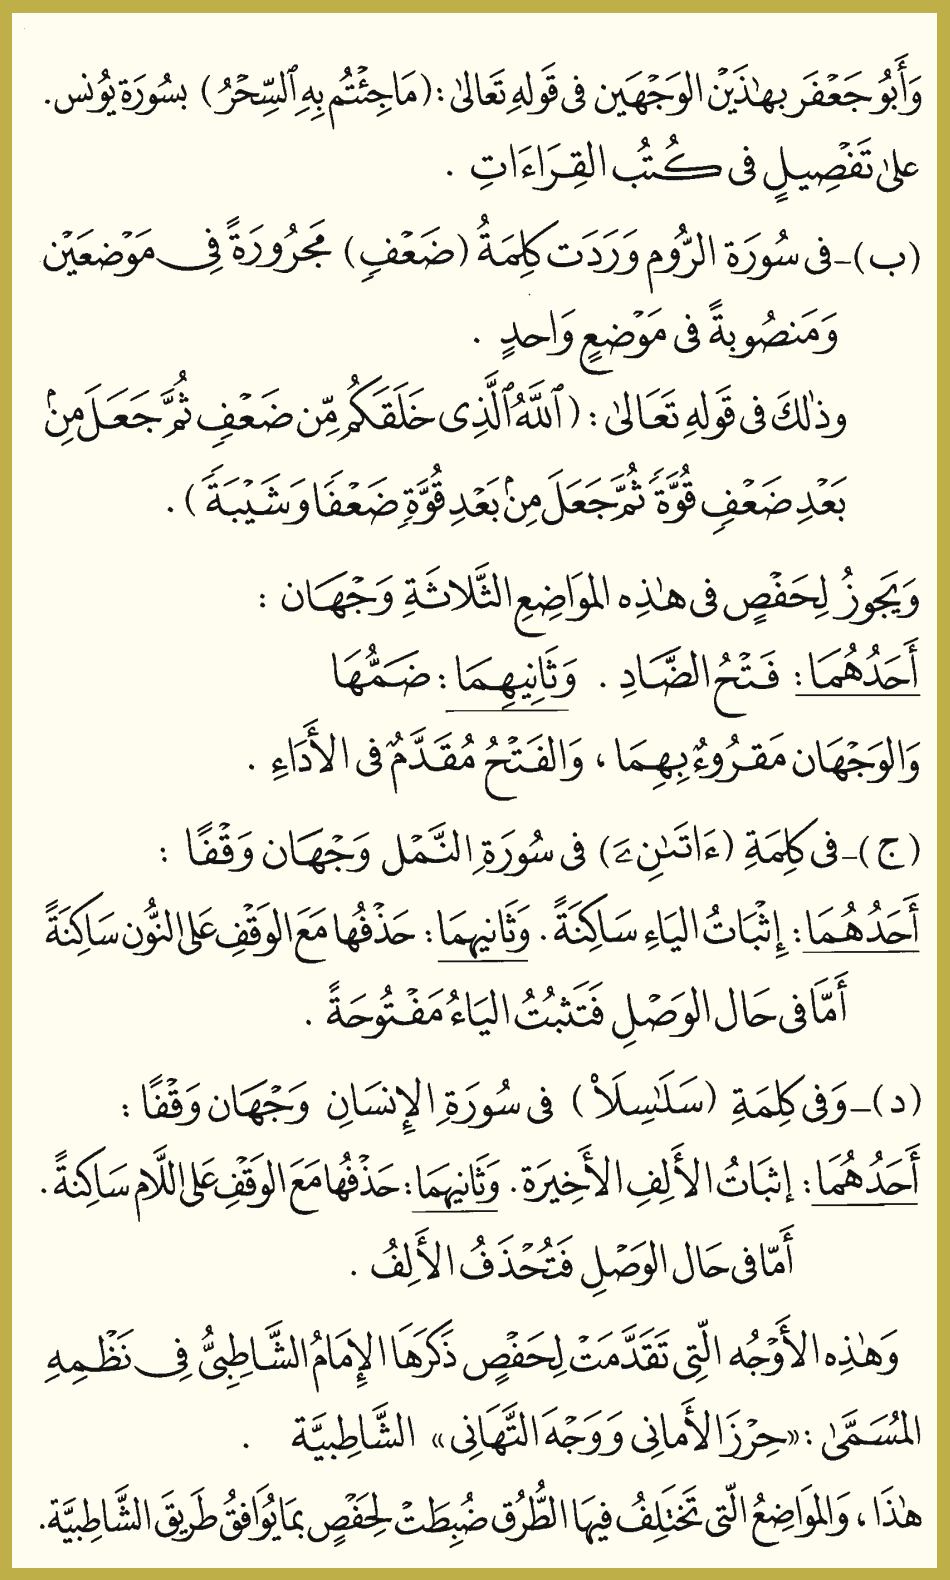 وَأَبُو جَعْفَرَ بِهٰذَيْنِ الوَجْهَيْنِ فى قَولِهِ تَعَالىٰ : (مَا جِئْتُم بِهِ ٱلسِّحْرُ) بسُورَة يُونس.
علىٰ تَفْصِيلٍ فى كُتُبِ القِرَاءَاتِ .
(ب) ـ فى سُورَة الرُّوم وَرَدَت كلِمَةُ (ضَعْفٍ) مَجرُورَةً فِى مَوْضعَيْن
وَمَنصُوبةً فى مَوْضعٍ وَاحدٍ .
وذٰلكَ فى قَولِهِ تَعَالىٰ : (ٱللَّهُ ٱلَّذِى خَلَقَكُم مِّن ضَعْفٍ ثُمَّ جَعَلَ مِنۢ
بَعْدِ ضَعْفٍ قُوَّةً ثُمَّ جَعَلَ مِنۢ بَعْدِ قُوَّةٍ ضَعْفًا وَشَيْبَةً) .
وَيَجُوزُ لِحَفْصٍ فى هٰذِه المَوَاضِعِ الثَّلَاثَةِ وَجْهَان :
أَحَدُهُمَا : فَتْحُ الضَّادِ . وَثَانِيهِمَا : ضَمُّهَا
وَالوَجْهَان مَقرُوءٌ بِهِمَا ، وَالفَتْحُ مُقَدَّمٌ فى الأَدَاءِ .
(ج) ـ فى كلِمَةِ (ءَاتَىٰنِۦَ) فى سُورَةِ النَّمْل وَجْهَان وَقْفًا :
أَحَدُهُمَا : إِثْبَاتُ اليَاءِ سَاكِنَةً . وَثَانيهمَا : حَذْفُها مَعَ الوَقْفِ عَلى النُّون سَاكِنَةً
أَمَّا فى حَال الوَصْلِ فَتَثبُتُ اليَاءُ مَفْتُوحَةً .
(د) ـ وَفى كلِمَةِ (سَلَٰسِلَا۟) فى سُورَةِ الإِنسَانِ وَجْهَان وَقْفًا :
أَحَدُهُمَا : إثبَاتُ الأَلِفِ الأَخِيرَة . وَثَانِيهمَا : حَذْفُهَا مَعَ الوَقْفِ عَلى اللَّام سَاكِنةً .
أَمّا فى حَال الوَصْلِ فَتُحْذَفُ الأَلِفُ .
وَهٰذِه الأَوْجُه الّتِى تَقَدَّمَتْ لِحَفْصٍ ذَكَرَهَا الإِمَامُ الشَّاطِبِىُّ فِى نَظْمِهِ
المُسَمَّىٰ : «حِرْزَ الأَمانِى وَوَجْهَ التَّهَانِى» الشَّاطِبيَّة .
هٰذَا ، وَالمَوَاضِعُ الّتى تَختَلِفُ فِيهَا الطُّرُق ضُبِطَتْ لِحَفْصٍ بمَا يُوَافقُ طَريقَ الشَّاطِبيَّة.